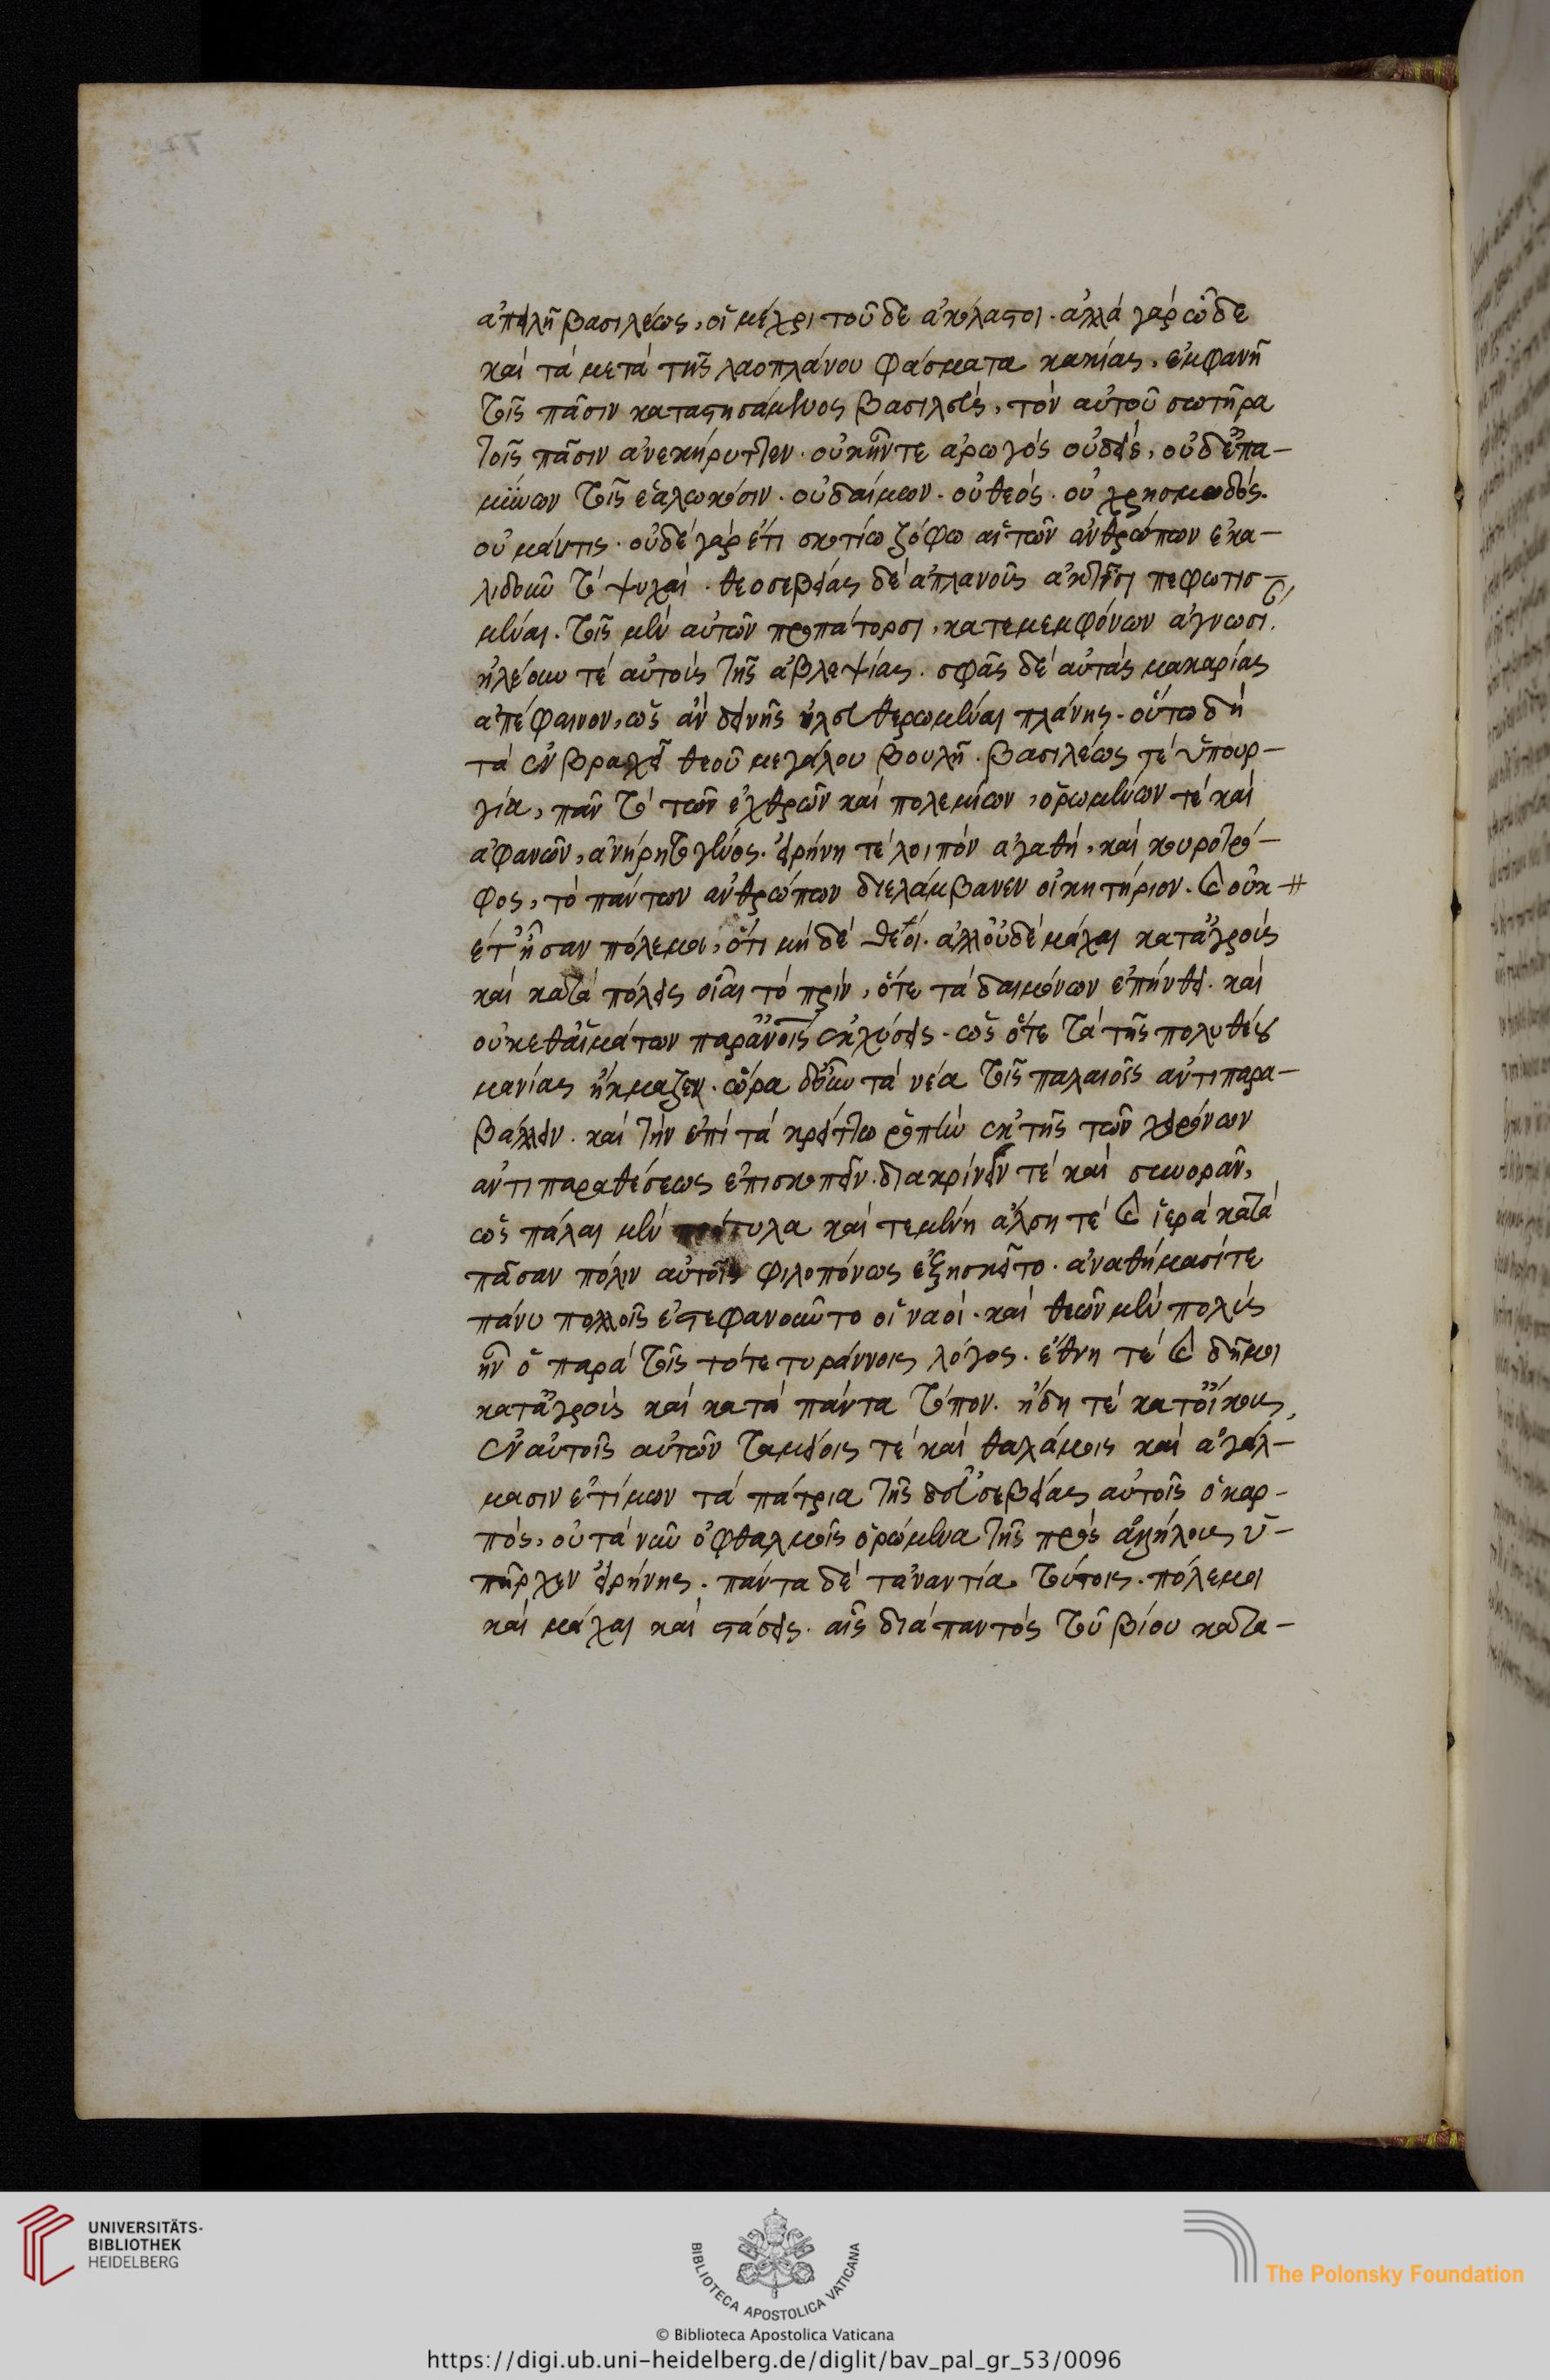 ἀπειλῆ βασιλέως, οἱ μέχρι τοῦδε ἀκόλαστοι. ἀλλὰ γὰρ ὧδε
καὶ τὰ μετὰ τῆς λαοπλάνου φάσματα κακίας, ἐμφανῆ
τοῖς πᾶσιν καταστησάμενος βασιλεὺς, τὸν αὐτοῦ σωτῆρα
τοῖς πᾶσιν ἀνεκήρυττεν. οὐκῆν τε ἀρωγὸς οὐδεὶς, οὐδ' ἐπα-
μύνων τοῖς ἑαλωκόσιν. οὐ δαίμων. οὐ θεός. οὐ χρησμωδός.
οὐ μάντις. οὐδὲ γὰρ ἔτι σκοτίω ζόφω αἱ τῶν ἀνθρώπων ἐκα-
λινδοῦντο ψυχαί. θεοσεβείας δὲ ἀπλανοῦς ἀκτῖσι πεφωτισ-
μέναι. τοῖς μὲν αὐτῶν προπάτορσι, κατεμέμφοντο ἀγνωσι.
ἠλέουν τὲ αὐτοὺς τῆς ἀβλεψίας. σφᾶς δὲ αὐτὰς μακαρίας
ἀπέφαινον, ὡς ἂν δεινῆς ἠλευθερωμέναι πλάνης. οὕτω δὴ
τὰ ἐν βραχεῖ θεοῦ μεγάλου βουλῆ. βασιλέως τὲ ὑπουρ-
γία, πᾶν τὸ τῶν ἐχθρῶν καὶ πολεμίων, ὁρωμένων τὲ καὶ
ἀφανῶν, ἀνήρητο γένος. εἰρήνη τὲ λοιπὸν ἀγαθὴ, καὶ κουροτρό-
φος, τὸ πάντων ἀνθρώπων διελάμβανεν οἰκητήριον. καὶ οὐκ
ἔτ' ἦσαν πόλεμοι, ὅτι μηδὲ θεοί. ἀλλ' οὐδὲ μάχαι κατ' ἀγροὺς
καὶ κατὰ πόλεις οἷαι τὸ πρὶν, ὅτε τὰ δαιμόνων ἐπήνθει. καὶ
οὐκέθ' αἱμάτων παρ' ἀνοις ἐκχύσεις. ὡς ὅτε τὰ τῆς πολυθέου
μανίας ἤκμαζεν. ὥρα δ' οὖν τὰ νέα τοῖς παλαιοῖς ἀντιπαρα-
βάλλειν. καὶ τὴν ἐπὶ τὰ κρείττω ῥοπὴν ἐκ τῆς τῶν χειρόνων
ἀντιπαραθέσεως ἐπισκοπεῖν. διακρίνειν τὲ καὶ συνορᾶν,
ὡς πάλαι μὲν πρόπυλα καὶ τεμένη ἄλση τὲ καὶ ἱερὰ κατὰ
πᾶσαν πόλιν αὐτοῖς φιλοπόνως ἐξησκεῖτο. ἀναθήμασί τε
πάνυ πολλοῖς ἐστεφανοῦντο οἱ ναοί. καὶ θεῶν μὲν πολὺς
ἦν ὁ παρὰ τοῖς τότε τυράννοις λόγος. ἔθνη τὲ καὶ δῆμοι
κατ' ἀγροὺς καὶ κατὰ πάντα τόπον. ἤδη τὲ κατ' οἴκους,
ἐν αὐτοῖς αὐτῶν ταμείοις τὲ καὶ θαλάμοις καὶ ἀγάλ-
μασιν ἐτίμων τὰ πάτρια τῆς δ' εὐσεβείας αὐτοῖς ὁ καρ-
πὸς, οὐ τὰ νῦν ὀφθαλμοῖς ὁρώμενα τῆς πρὸς ἀλλήλους ὑ-
πῆρχεν εἰρήνης. πάντα δὲ τἀναντία τούτοις. πόλεμοι
καὶ μάχαι καὶ στάσεις. αἷς διὰ παντὸς τοῦ βίου κατα-
UNIVERSITÄTS-
BIBLIOTHEK
HEIDELBERG
BIBLIOTECA APOSTOLICA VATICANA
The Polonsky Foundation
© Biblioteca Apostolica Vaticana
https://digi.ub.uni-heidelberg.de/diglit/bav_pal_gr_53/0096